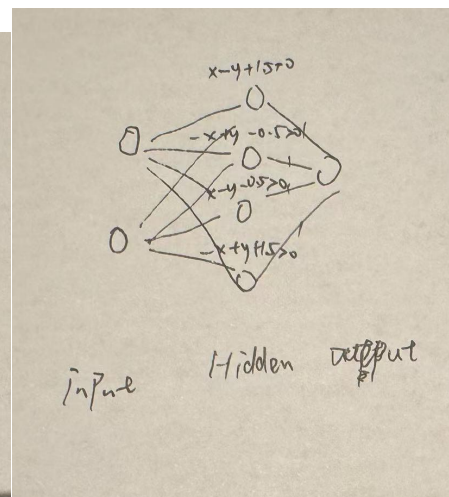 x-y+1.5>0
-x+y-0.5>0
x-y-0.5>0
-x+y+1.5>0
Input
Hidden
Output